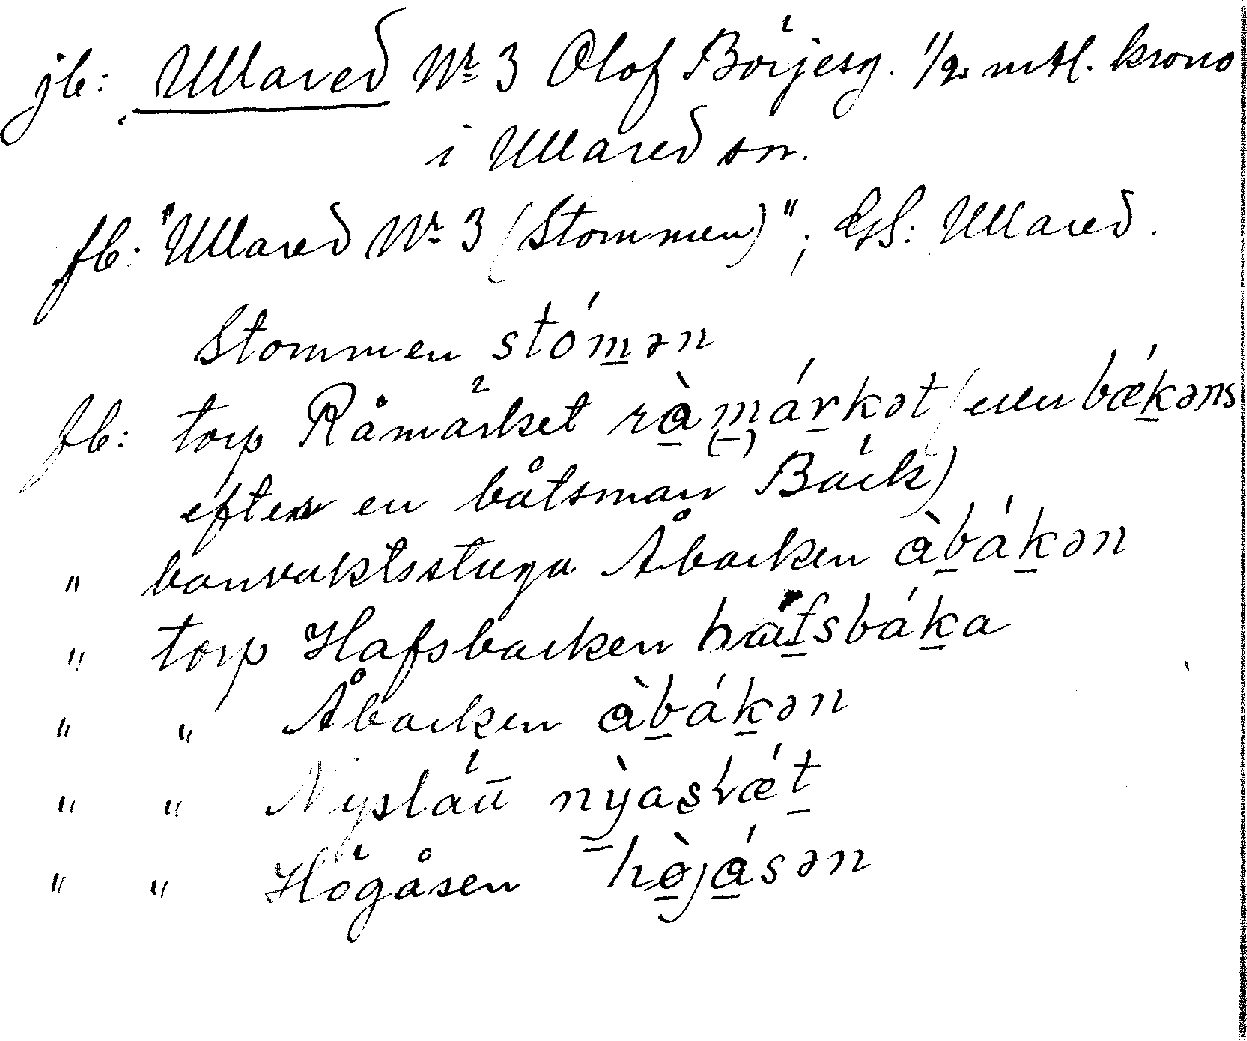 jb: Ullared Nr 3 Olof Börjesg. 1/2 mtl. krono
i Ullared sn.
fb: "Ullared Nr 3 (Stommen)"; Gsl: Ullared.
Stommen stómən
fb: torp Råmärket ràmárkət (eller bǽkəns
efter en båtsman Bäck)
" banvaktsstuga Åbacken àbákən
" torp Hafsbacken háfsbáka
" " Åbacken àbákən
" " Nyslätt
" " Högåsen hø̀jásən